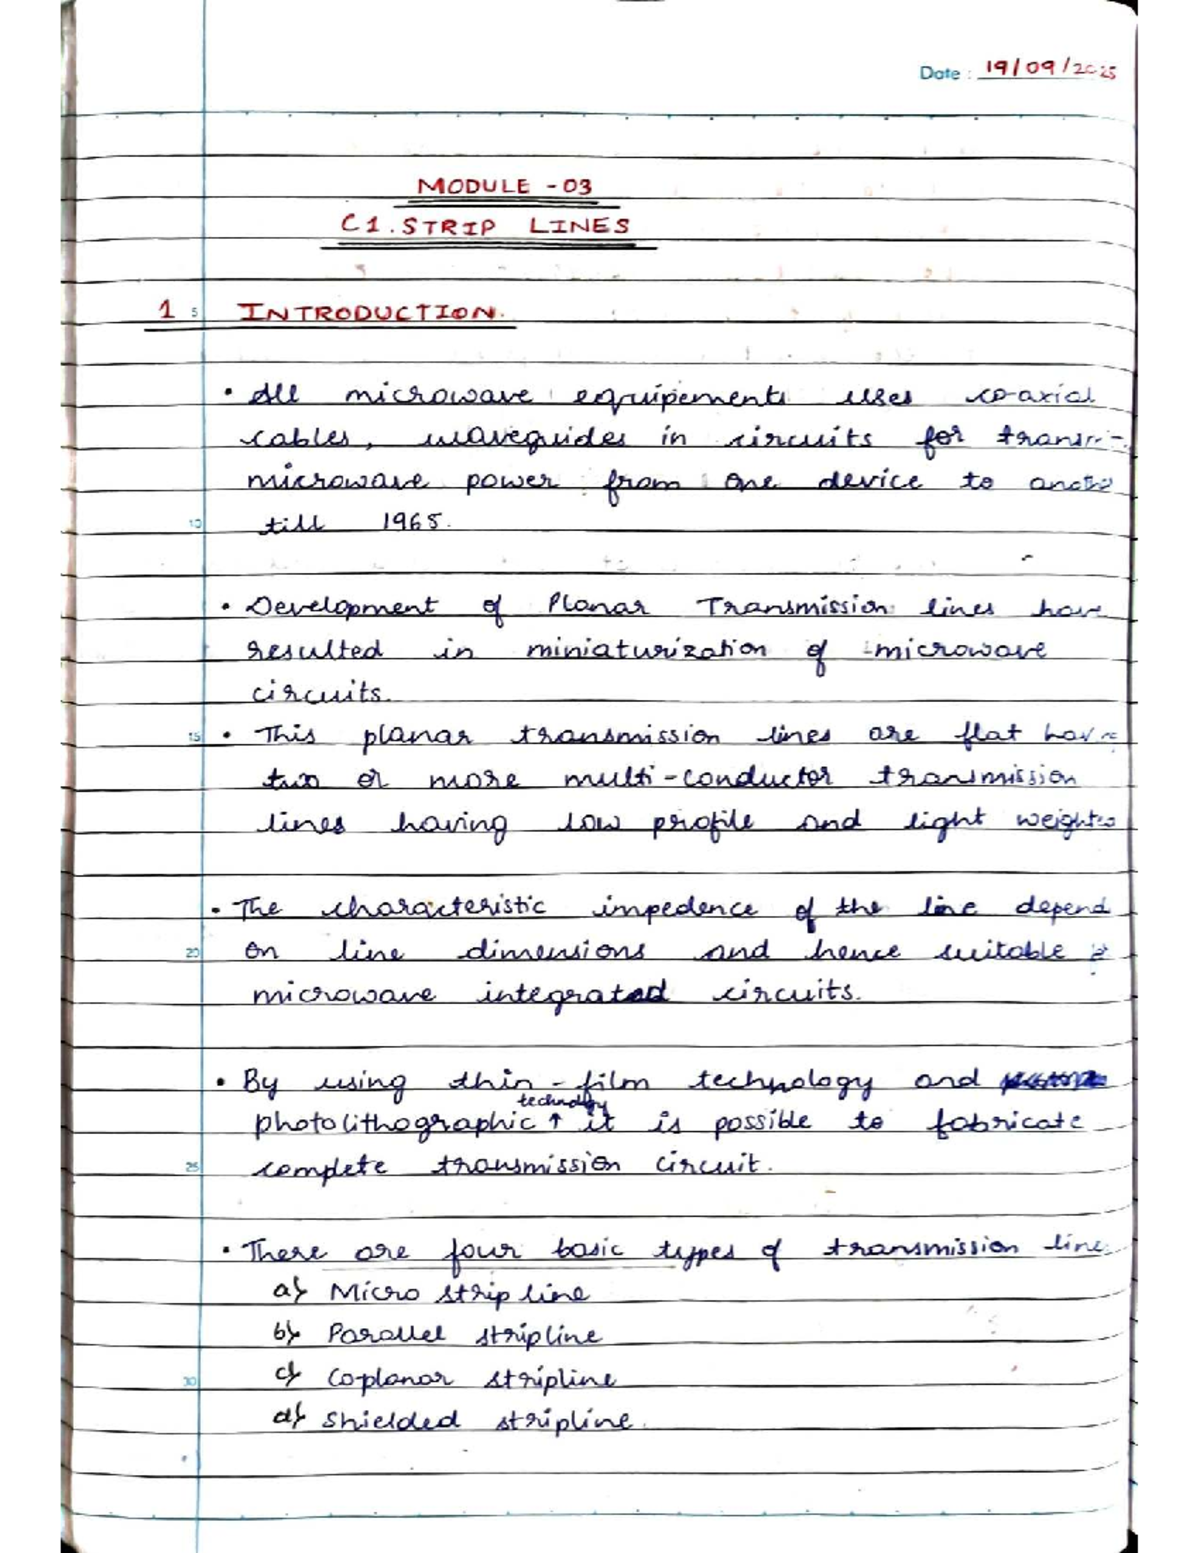 Date : 19/09/2025
MODULE - 03
C1. STRIP LINES
1 5 INTRODUCTION.
• All microwave equipements uses co-axial
cables, waveguides in circuits for
microwave power from one device to
10 till 1965.
• Development of Planar Transmission lines have
resulted in miniaturization of microwave
circuits.
15 • This planar transmission lines are flat
two or more multi-conductor transmission
lines having low profile and light
• The characteristic impedence of the line depend
20 on line dimensions and hence suitable
microwave integrated circuits.
• By using thin-film technology and
technology
photolithographic ↑ it is possible to fabricate
25 complete transmission circuit.
• There are four basic types of transmission line
a) Micro strip line
b) Parallel stripline
30 c) Coplanar stripline
d) Shielded stripline.